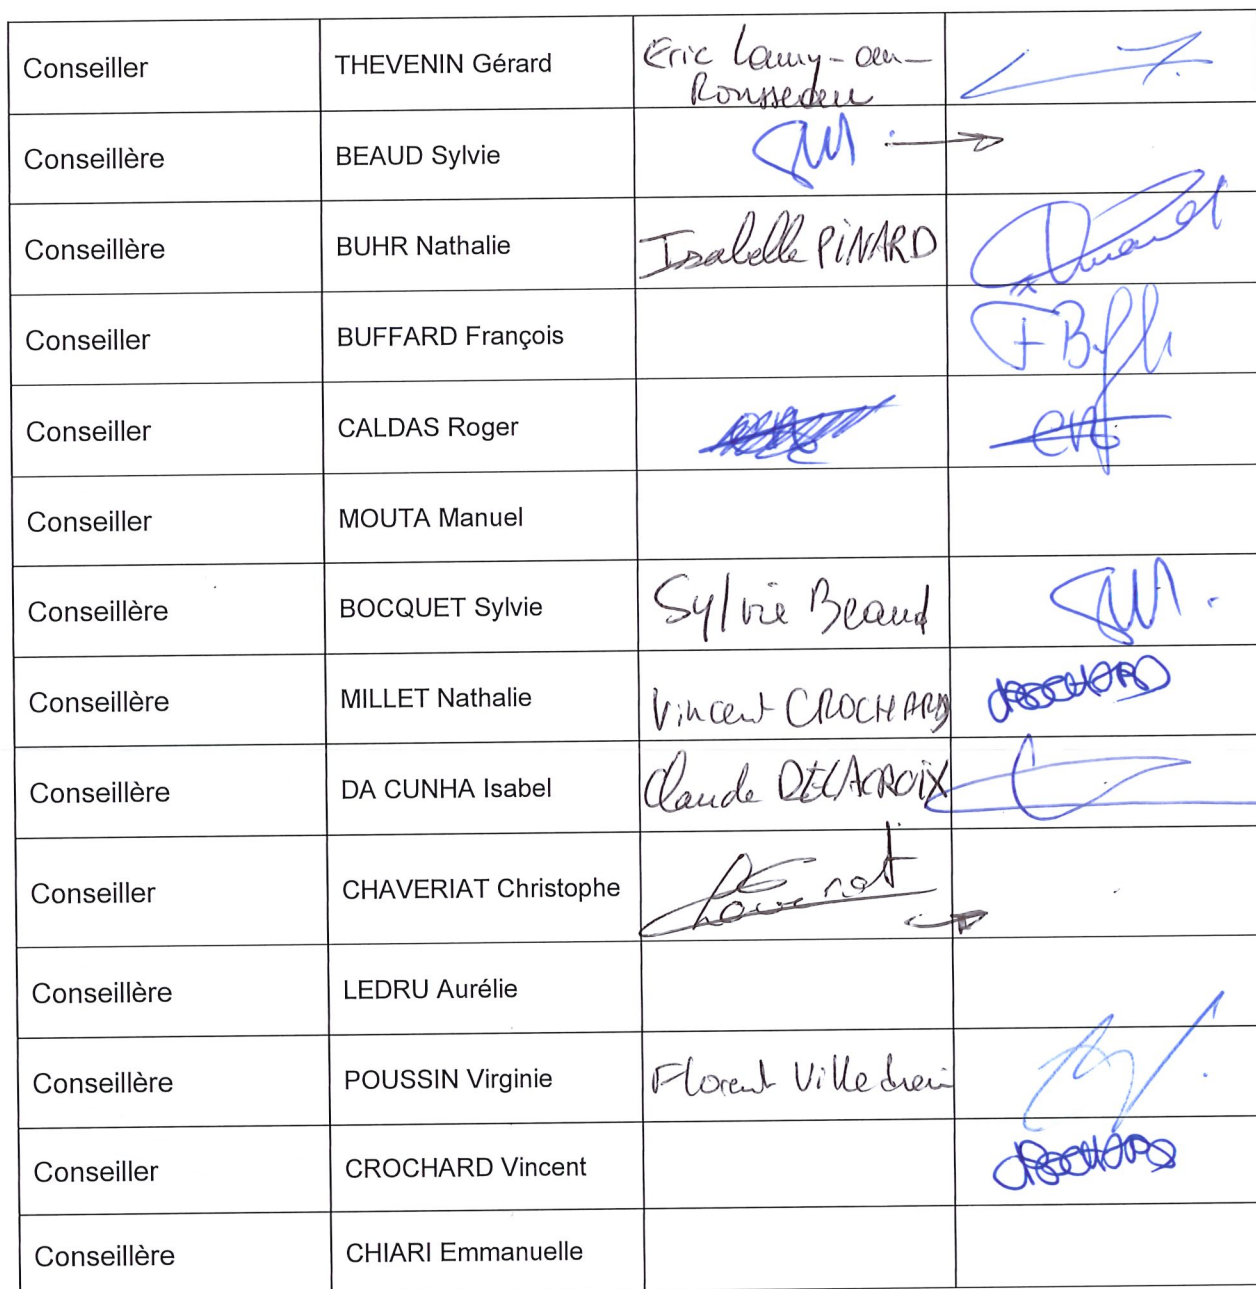 Conseiller THEVENIN Gérard Eric Lamy-au-
Rousseau
Conseillère BEAUD Sylvie
Conseillère BUHR Nathalie Isabelle PINARD
Conseiller BUFFARD François FBuff
Conseiller CALDAS Roger
Conseiller MOUTA Manuel
Conseillère BOCQUET Sylvie Sylvie Beaud
Conseillère MILLET Nathalie Vincent CROCHARD CROCHARD
Conseillère DA CUNHA Isabel Claude DELACROIX
Conseiller CHAVERIAT Christophe
Conseillère LEDRU Aurélie
Conseillère POUSSIN Virginie Florent
Conseiller CROCHARD Vincent CROCHARD
Conseillère CHIARI Emmanuelle